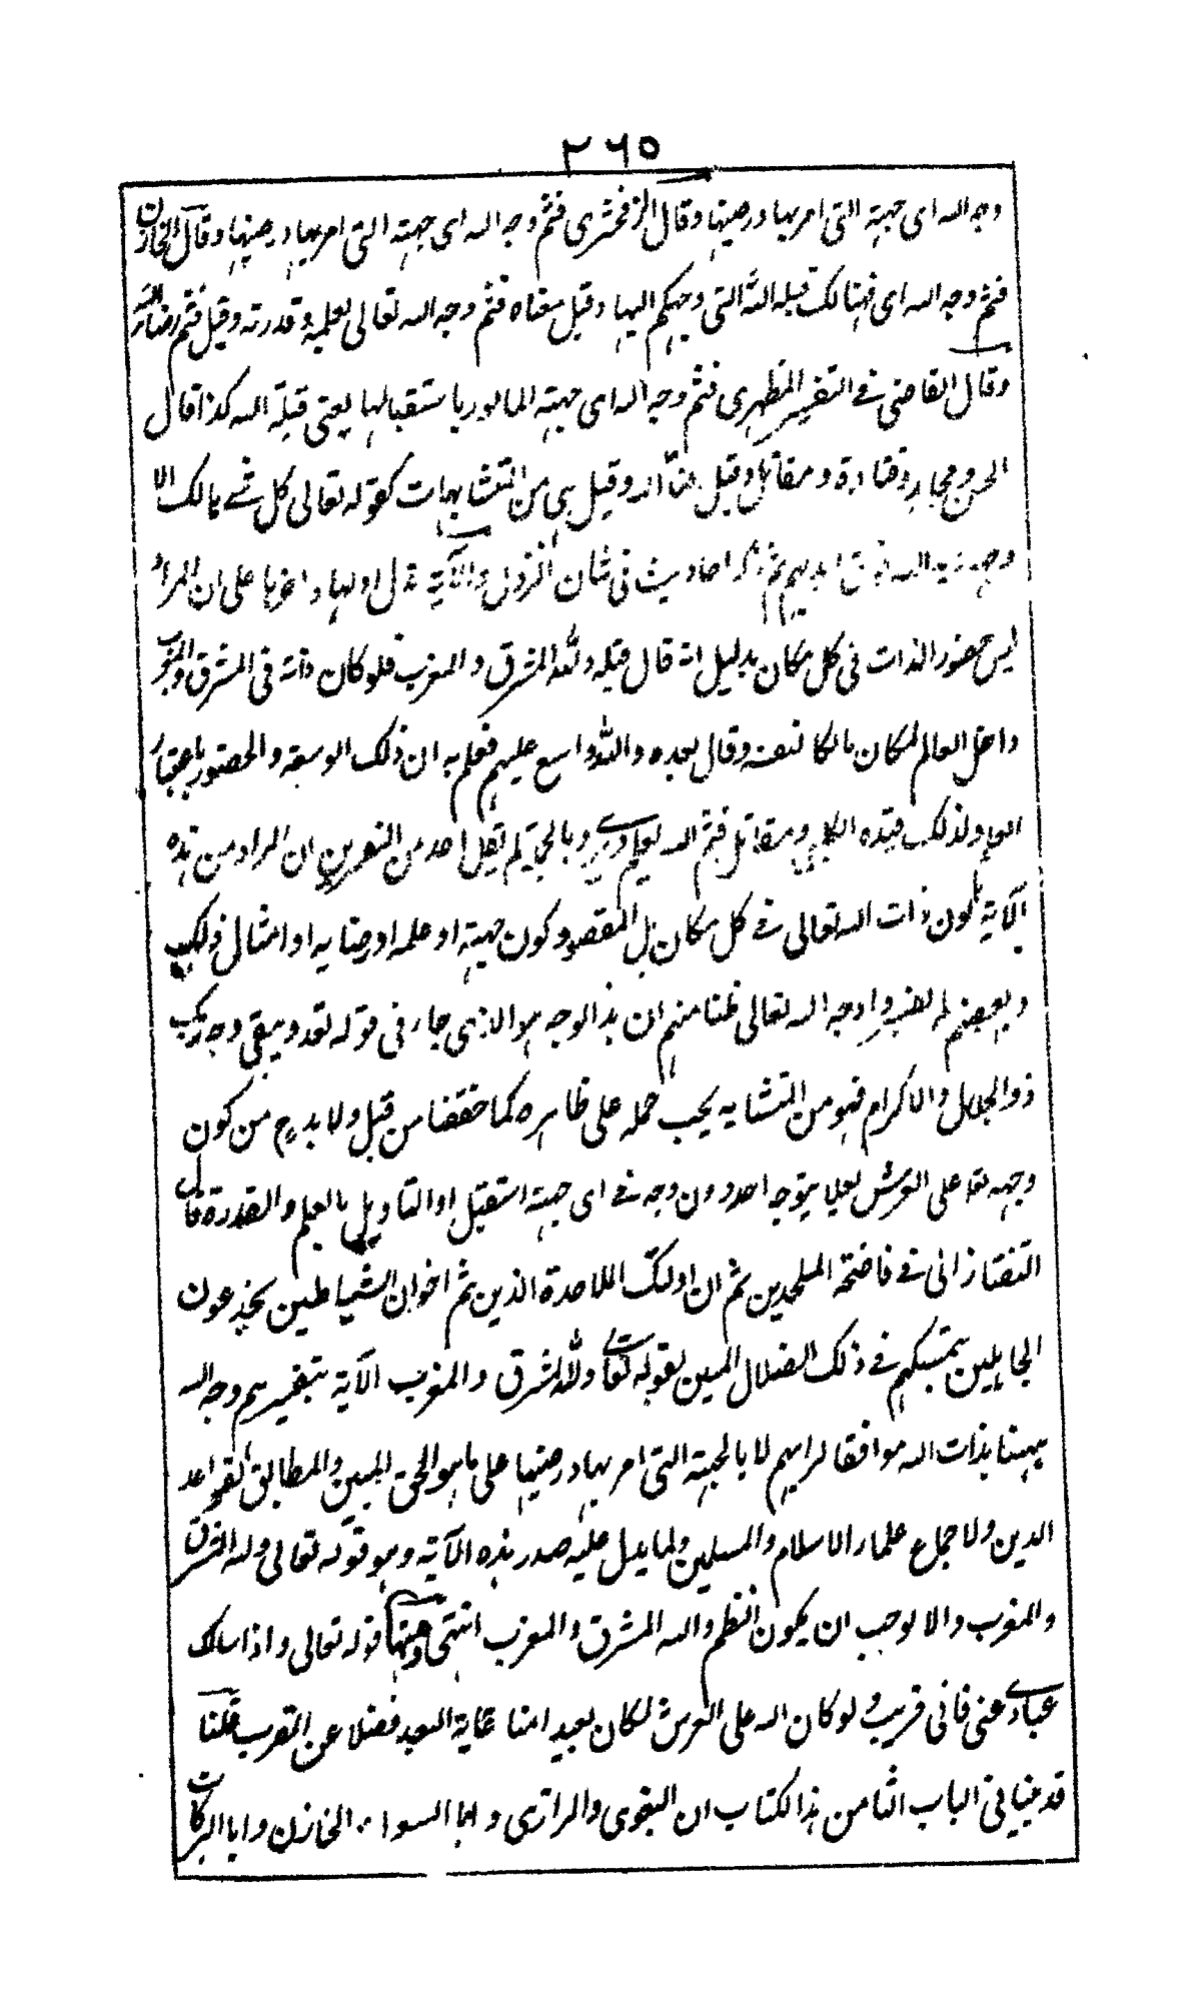 ٢٦٥
وجه الله اى جهته التى امر بها ورضيها وقال الزمخشرى فثم وجه الله اى جهته التى امر بها ورضيها وقال الخازن
فثم وجه الله اى فهنالك قبلة الله التى وجهكم اليها وقيل معناه فثم وجه الله تعالى بعلمه وقدرته وقيل فثم رضاء الله
وقال القاضى فى التفسير المظهرى فثم وجه الله اى جهته المامور باستقبالها يعنى قبلة الله كذا قال
الحسن ومجاهد وقتادة ومقاتل وقيل رضاء الله وقيل هى من المتشابهات كقوله تعالى كل شئ هالك الا
وجهه يد الله فوق ايديهم ثم ذكر احاديث فى شان النزول والآية تدل اولها واخرها على ان المراد
ليس حضور الذات فى كل مكان بدليل انه قال قبله ولله المشرق والمغرب فلو كان ذاته فى المشرق والمغرب
داخل العالم لمكان وقال بعده والله واسع عليم فعلم به ان ذلك الوسعة والحضور باعتبار
العلم ولذلك قيده الكلبى ومقاتل فثم الله يعلم ويرى وبالجملة لم يقل احد من المفسرين ان المراد من هذه
الآية كون ذات الله تعالى فى كل مكان بل المقصود كون جهته او علمه او رضايه او امثال ذلك
وبعضهم لم يفسروا وجه الله تعالى ظنا منهم ان هذا لوجه هو الاذى جار فى قوله تعه ويبقى وجه ربك
ذو الجلال والاكرام فهو من المتشابه يجب حمله على ظاهره كما حققنا من قبل ولا بد من كون
وجهه تعا على العرش لعلا يتوجه احد دون وجه فى اى جهته استقبل او التاويل بالعلم والقدرة قال
التفتازانى فى فاضحة الملحدين ثم ان اولئك الملاحدة الذين هم اخوان الشياطين يخدعون
الجاهلين بتمسكهم فى ذلك الضلال المبين بقوله تعالى ولله المشرق والمغرب الآية بتفسيرهم وجه الله
ههنا بذات الله موافقا لرايهم لا بالجهة التى امر بها ورضيها على ما هو الحق المبين والمطابق لقواعد
الدين ولاجماع علماء الاسلام والمسلمين ولما يدل عليه صدر هذه الآية وهو قوله تعالى ولله المشرق
والمغرب والا لوجب ان يكون النظم والله المشرق والمغرب انتهى ومنها قوله تعالى واذا سالك
عبادى عنى فانى قريب ولو كان الله على العرش لكان بعيدا منا غاية البعد فضلا عن القرب قلنا
قد بينا فى الباب الثامن هذا لكتاب ان البغوى والرازى وابا السعود والخازن وابا البركات